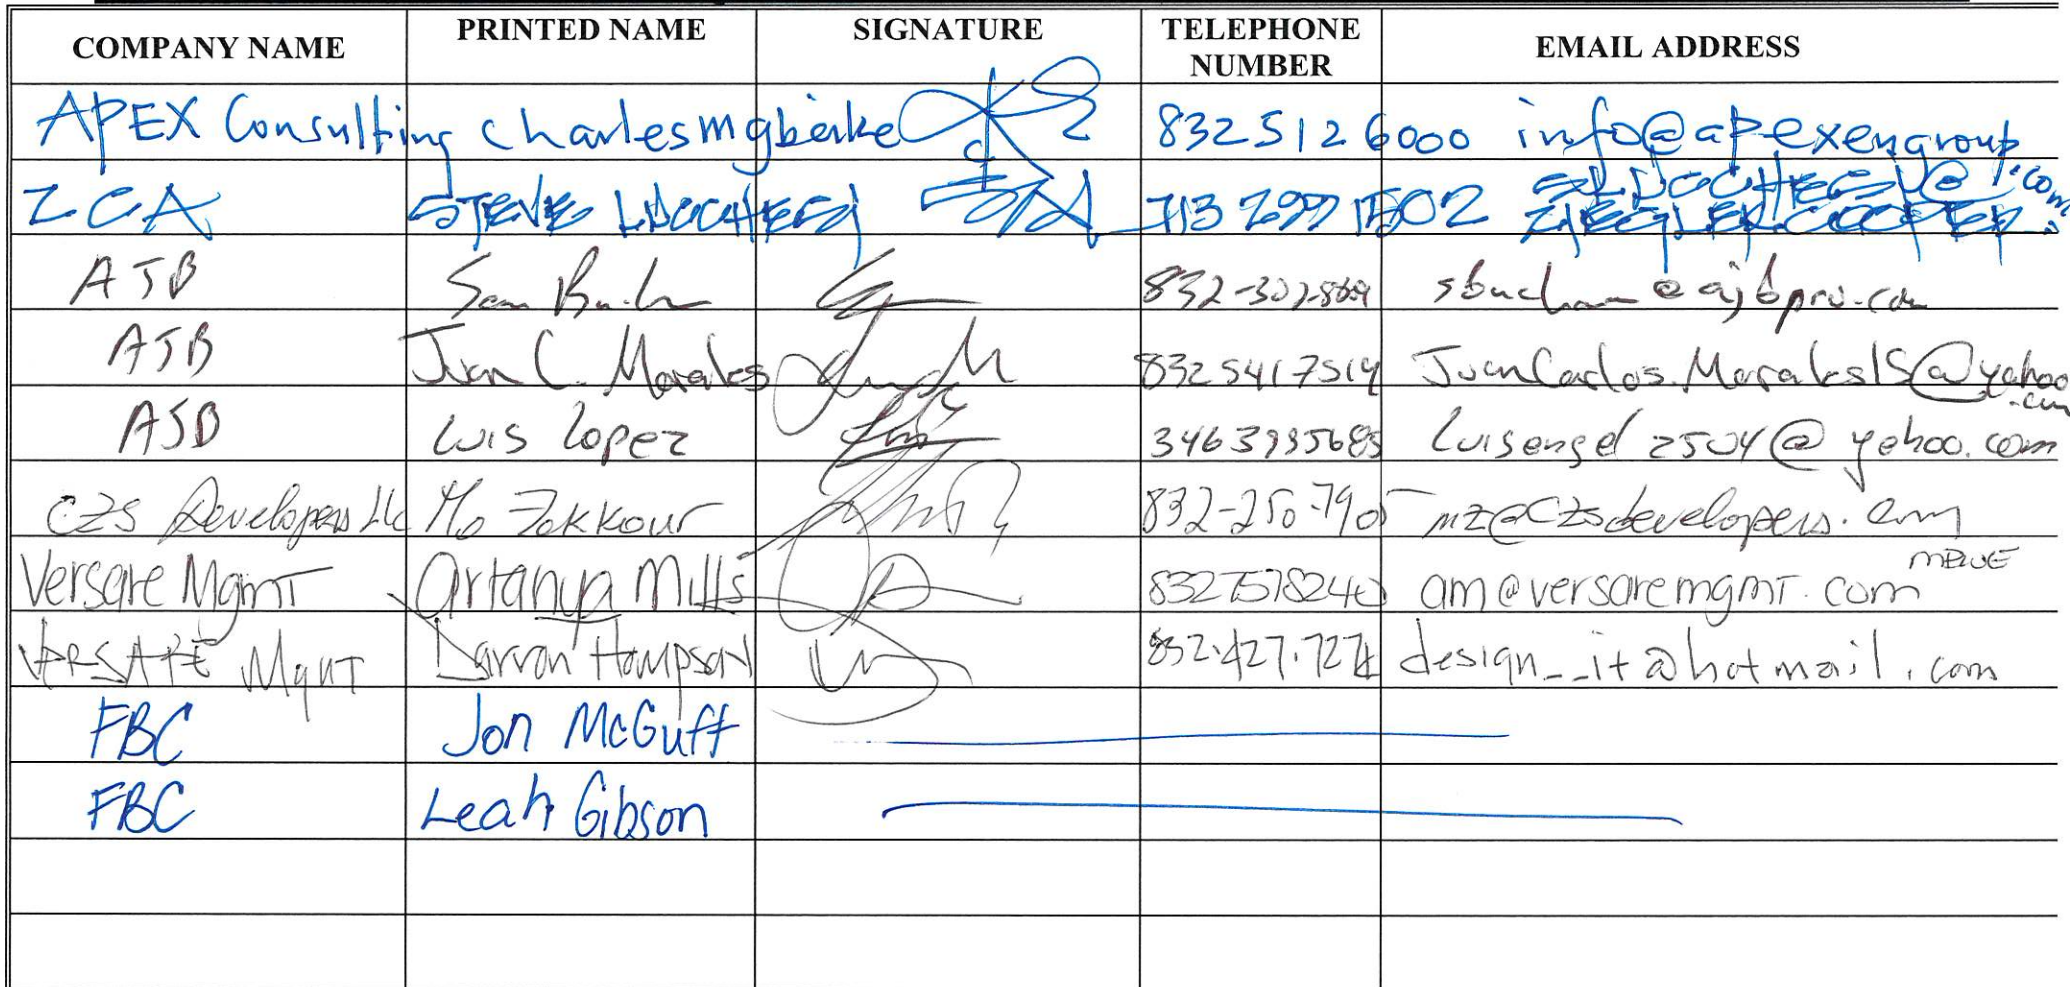 COMPANY NAME PRINTED NAME SIGNATURE TELEPHONE NUMBER EMAIL ADDRESS
APEX Consulting charles mgbeike 832 512 6000 info@apexengroup.com
ZCA STEVE 713
AJB Sam 832-
AJB Juan C. Morales 8325417514 JuanCarlos.Morales15@yahoo.com
AJB Luis Lopez 3463935685 luisengel2504@yehoo.com
CZS Developers llc Mo Zekkour 832-250-7905 mz@czsdevelopers.com
Versare Mgmt artanya Mills 8327578240 am@versaremgmt.com
MBWE
VERSARE Mgmt Darron Hampson 832.427.7274 design__it@hotmail.com
FBC Jon McGuff
FBC Leah Gibson